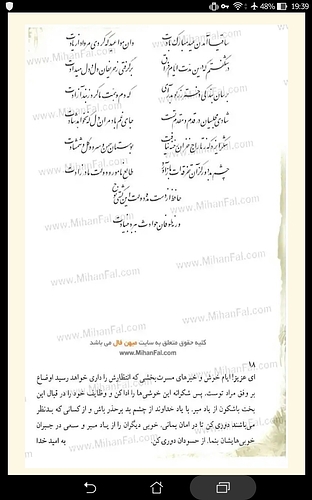 48% 19:39
ساقیا آمدن عید مبارک بادت
وان مواعید که کردی مرواد از یادت
در شگفتم که درین مدت ایام فراق
برگرفتی ز حریفان دل و دل میدادت
برسان بندگی دختر رز گو بدر آی
که دم و همت ما کرد ز بند آزادت
شادی مجلسیان در قدم و مقدم تست
جای غم باد مر آن دل که نخواهد شادت
شکر ایزد که ز تاراج خزان رخنه نیافت
بوستان سمن و سرو و گل و شمشادت
چشم بد دور کز آن تفرقه‌ات باز آورد
طالع نامور و دولت مادرزادت
حافظ از دست مده دولت این کشتی نوح
ورنه طوفان حوادث ببرد بنیادت
www.MihanFal.com
کلیه حقوق متعلق به سایت میهن فال می باشد
www.MihanFal.com
۱۸
ای عزیز! ایام خوش و خبرهای مسرت‌بخشی که انتظارش را داری خواهد رسید اوضاع
بر وفق مراد توست. پس شکرانه این خوشی‌ها را ادا کن و وظایف خود را در قبال این
بخت باشکون از یاد مبر. با یاد خداوند از چشم بد پرحذر باش و از کسانی که بدنظر
می‌باشند دوری کن تا در امان بمانی. خوبی دیگران را از یاد مبر و سعی در جبران
خوبی‌هایشان بنما. از حسودان دوری کن. به امید خدا